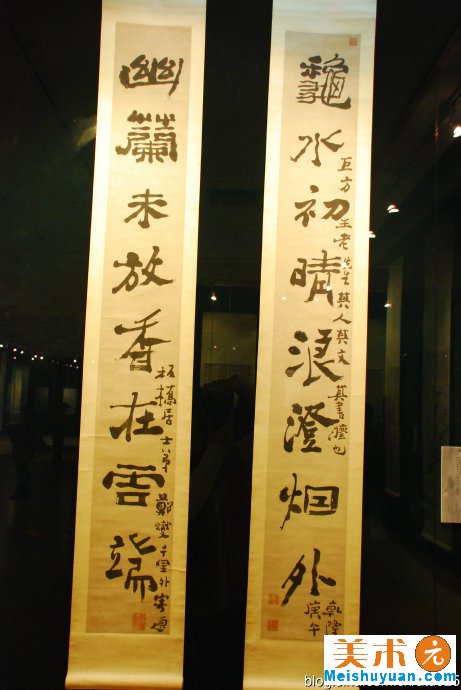 龝水初晴浪澄烟外
巨方王老先生其人其文
其書
乾隆
庚午
幽蘭未放香在雲端
板橋居士弟
鄭燮千里外寄
美术元
Meishuyuan.com